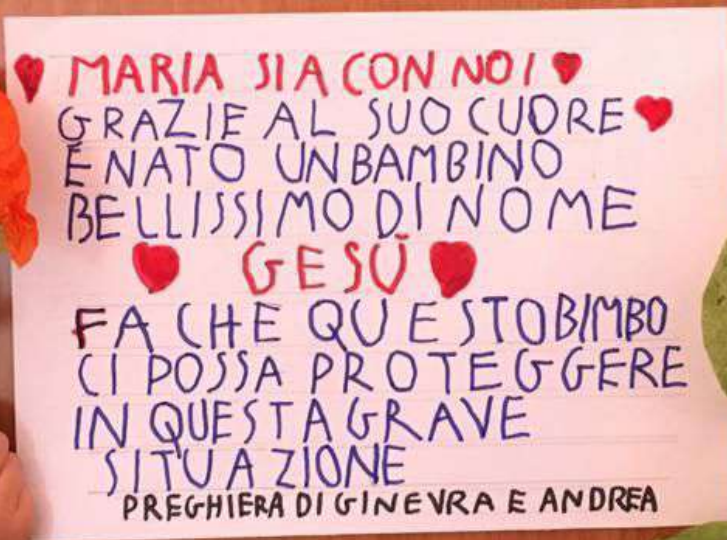 MARIA SIA CON NOI
GRAZIE AL SUO CUORE
E NATO UN BAMBINO
BELLISSIMO DI NOME
GESÙ
FA CHE QUESTO BIMBO
CI POSSA PROTEGGERE
IN QUESTA GRAVE
SITUAZIONE
PREGHIERA DI GINEVRA E ANDREA